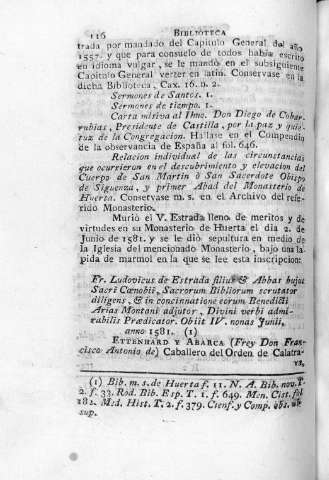 116 BIBLIOTECA
trada por mandado del Capitulo General del año
1557. y que para consuelo de todos habia escrito
en idioma vulgar, se le mandó en el subsiguiente
Capitulo General verter en latin. Conservase en la
dicha Biblioteca, Cax. 16. n. 2.
Sermones de Santos. 1.
Sermones de tiempo. 1.
Carta misiva al Ilmo. Don Diego de Cobar-
rubias, Presidente de Castilla, por la paz y quie-
tud de la Congregacion. Hallase en el Compendio
de la observancia de España al fol. 646.
Relacion individual de las circunstancias
que ocurrieron en el descubrimiento y elevacion del
Cuerpo de San Martin ò San Sacerdote Obispo
de Siguenza, y primer Abad del Monasterio de
Huerta. Conservase m. s. en el Archivo del refe-
rido Monasterio.
Murió el V. Estrada lleno de meritos y de
virtudes en su Monasterio de Huerta el dia 2. de
Junio de 1581. y se le dió sepultura en medio de
la Iglesia del mencionado Monasterio, bajo una la-
pida de marmol en la que se lee esta inscripcion:
Fr. Ludovicus de Estrada filius & Abbas hujus
Sacri Cœnobii, Sacrorum Bibliorum scrutator
diligens, & in concinnatione eorum Benedicti
Ariæ Montani adjutor, Divini verbi admi-
rabilis Prædicator. Obiit IV. nonas Junii,
anno 1581. (1)
ETTENHARD Y ABARCA (Frey Don Fran-
cisco Antonio de) Caballero del Orden de Calatra-
va,
(1) Bib. m. s. de Huerta f. 11. N. A. Bib. nov. T.
2. f. 33. Rod. Bib. Esp. T. 1. f. 649. Mon. Cist. fol
182. Med. Hist. T. 2. f. 379. Cienf. y Comp. obs. ubi
sup.